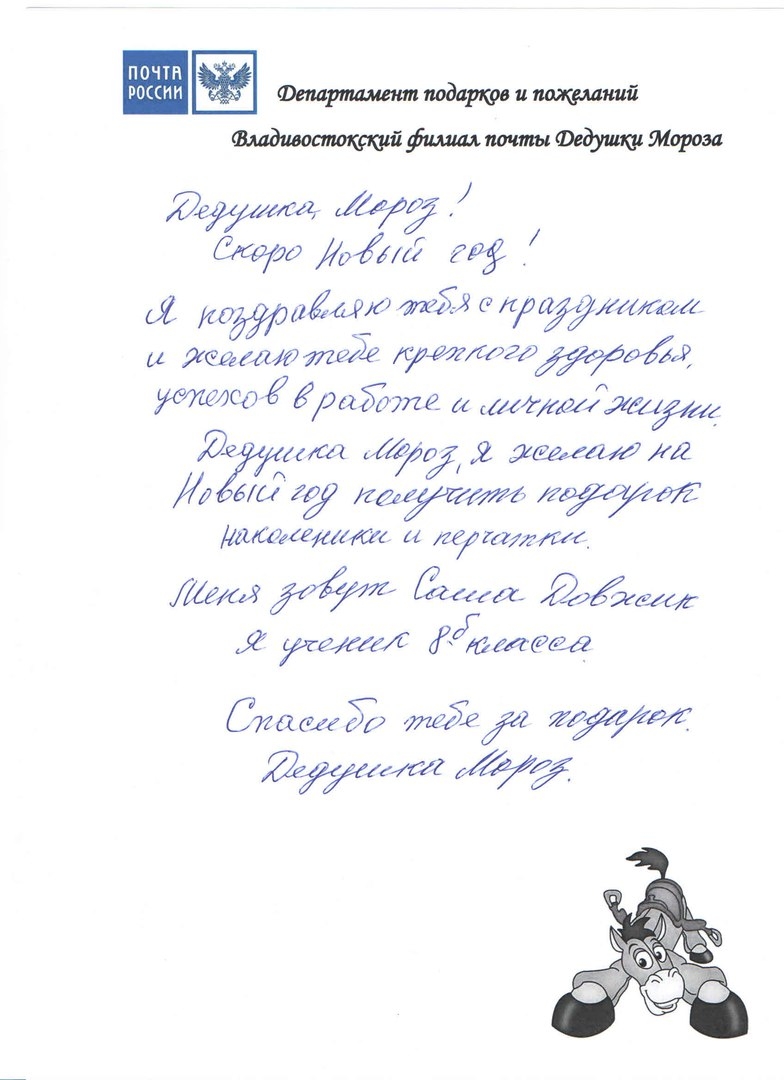 ПОЧТА
РОССИИ
Департамент подарков и пожеланий
Владивостокский филиал почты Дедушки Мороза
Дедушка, Мороз!
Скоро Новый год!
Я поздравляю тебя с праздником
и желаю тебе крепкого здоровья,
успехов в работе и личной жизни.
Дедушка Мороз, я желаю на
Новый год получить подарок
наколеники и перчатки.
Меня зовут Саша Довжик
Я ученик 8б класса
Спасибо тебе за подарок.
Дедушка Мороз.